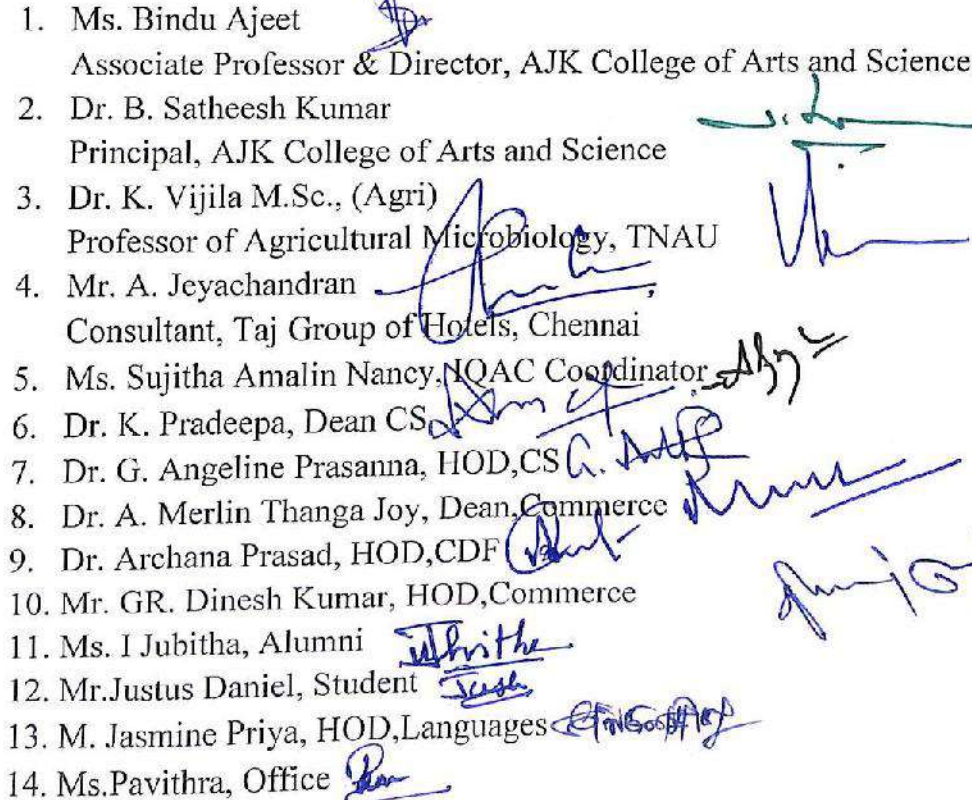 1. Ms. Bindu Ajeet
Associate Professor & Director, AJK College of Arts and Science
2. Dr. B. Satheesh Kumar
Principal, AJK College of Arts and Science
3. Dr. K. Vijila M.Sc., (Agri)
Professor of Agricultural Microbiology, TNAU
4. Mr. A. Jeyachandran
Consultant, Taj Group of Hotels, Chennai
5. Ms. Sujitha Amalin Nancy, IQAC Coordinator
6. Dr. K. Pradeepa, Dean CS
7. Dr. G. Angeline Prasanna, HOD,CS
8. Dr. A. Merlin Thanga Joy, Dean,Commerce
9. Dr. Archana Prasad, HOD,CDF
10. Mr. GR. Dinesh Kumar, HOD,Commerce
11. Ms. I Jubitha, Alumni
12. Mr.Justus Daniel, Student
13. M. Jasmine Priya, HOD,Languages
14. Ms.Pavithra, Office